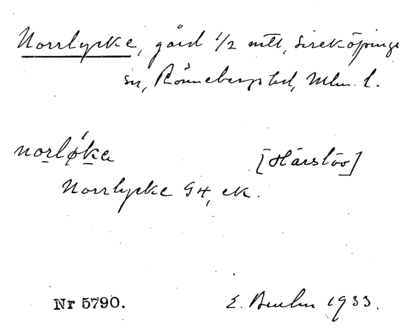 Norrlycke, gård 1/2 mtl, Sireköpinge
sn, Rönnebergs hd, Mlm. l.
norløka [Härslöv]
Norrlycke G4, ek.
Nr 5790. E. 1933.